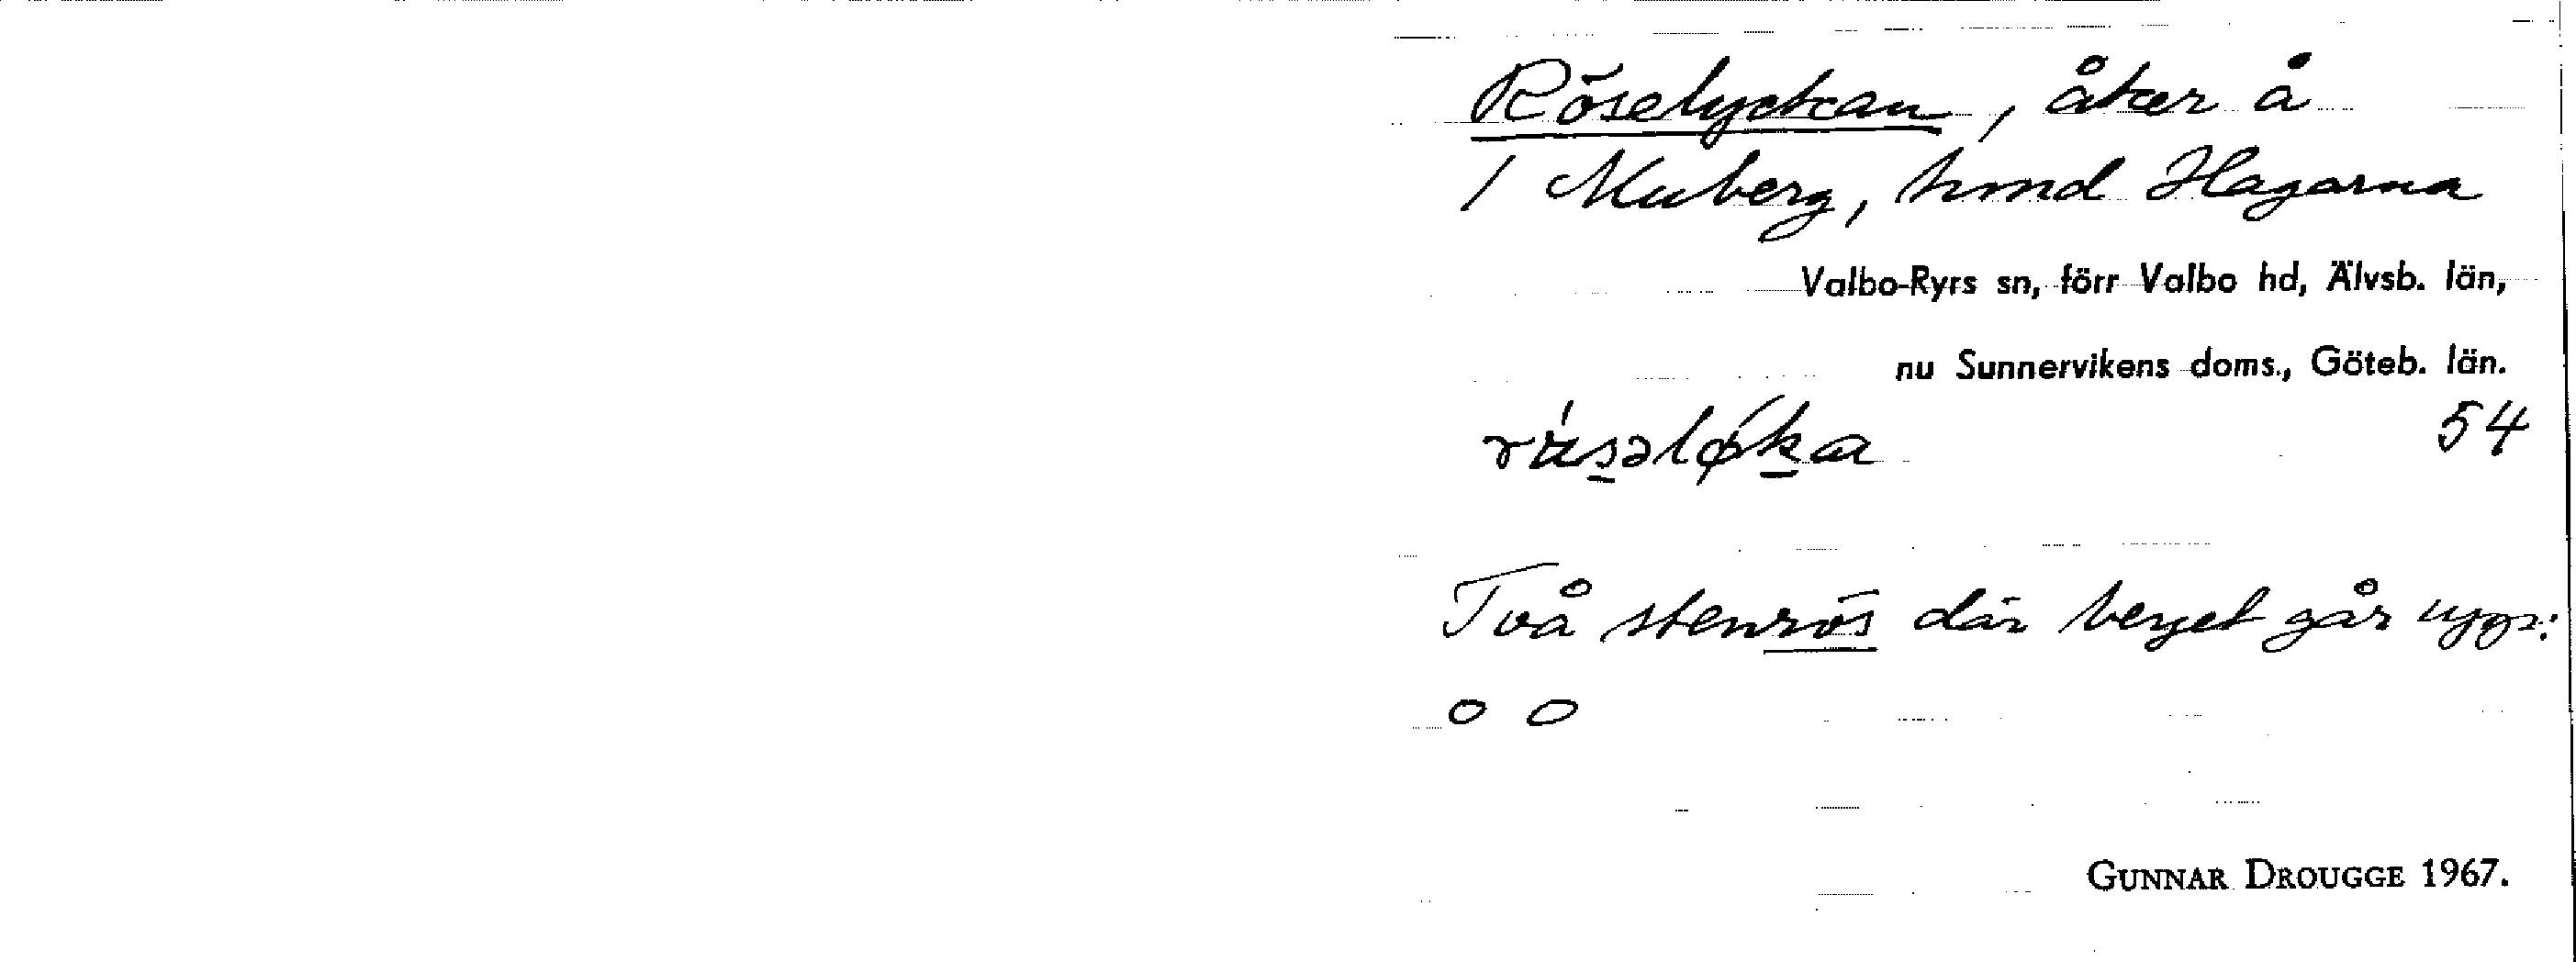 Röselyckan, åker å
1 Muberg, hmd Hagarna
Valbo-Ryrs sn, förr Valbo hd, Älvsb. län,
nu Sunnervikens doms., Göteb. län.
54
Två stenrös där berget går upp:
o o
GUNNAR DROUGGE 1967.